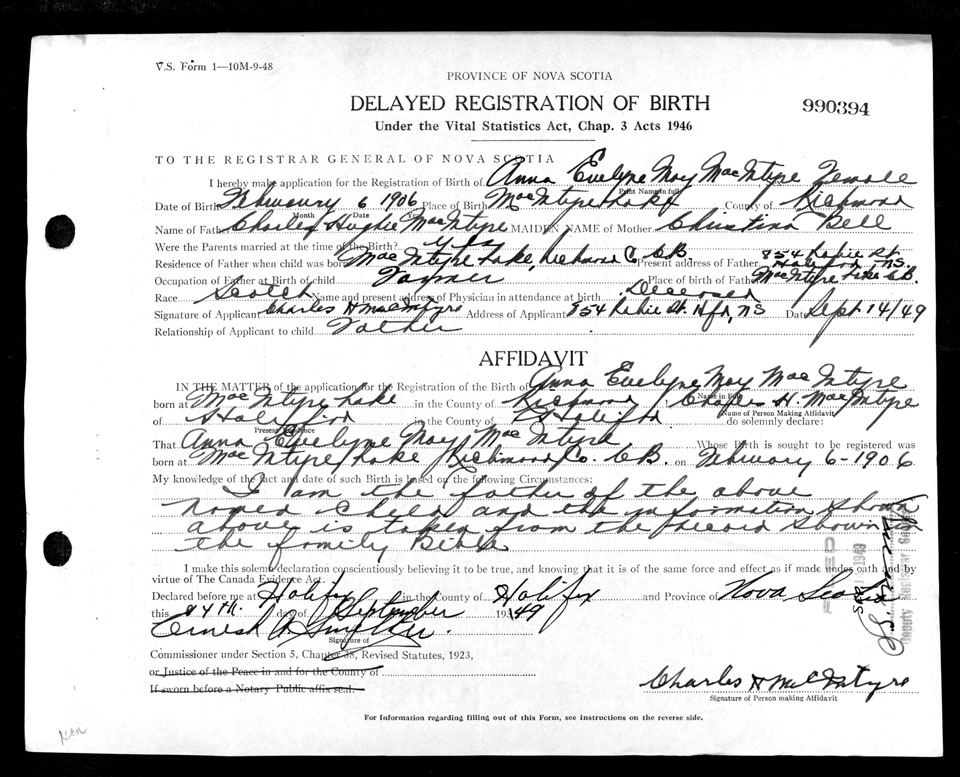 V.S. Form 1—10M-9-48
PROVINCE OF NOVA SCOTIA
DELAYED REGISTRATION OF BIRTH
990394
Under the Vital Statistics Act, Chap. 3 Acts 1946
TO THE REGISTRAR GENERAL OF NOVA SCOTIA
I hereby make application for the Registration of Birth of Anna Evelyne May MacIntyre Female
Print Name in full
Date of Birth February 6 1906 Place of Birth MacIntyre Lake County of Richmond
Month Date Year
Name of Father Charles Hughie MacIntyre MAIDEN NAME of Mother Christina Bell
Were the Parents married at the time of the Birth? yes
Residence of Father when child was born MacIntyre Lake, Richmond Co CB. Present address of Father 854 Robie St. Halifax NS.
Occupation of Father at Birth of child Farmer Place of Birth of Father MacIntyre Lake CB.
Race Scotch Name and present address of Physician in attendance at birth Deceased
Signature of Applicant Charles H MacIntyre Address of Applicant 854 Robie St. Hfx, NS Date Sept 14/49
Relationship of Applicant to child Father
AFFIDAVIT
IN THE MATTER of the application for the Registration of the Birth of Anna Evelyne May MacIntyre
Name in Full
born at MacIntyre Lake in the County of Richmond Charles H. MacIntyre
Name of Person Making Affidavit
of Halifax in the County of Halifax do solemnly declare:
Present Residence
That Anna Evelyne May MacIntyre Whose Birth is sought to be registered was
born at MacIntyre Lake Richmond Co. CB. on February 6-1906
My knowledge of the fact and date of such Birth is based on the following Circumstances:
I am the father of the above
named child and the information shown
above is taken from the record shown in
the family Bible
I make this solemn declaration conscientiously believing it to be true, and knowing that it is of the same force and effect as if made under oath and by
virtue of The Canada Evidence Act.
Declared before me at Halifax in the County of Halifax and Province of Nova Scotia
this 14th. day of September 1949
Signature of
Commissioner under Section 5, Chapter 38, Revised Statutes, 1923,
or Justice of the Peace in and for the County of
If sworn before a Notary Public affix seal.
Charles H MacIntyre
Signature of Person making Affidavit
For Information regarding filling out of this Form, see instructions on the reverse side.
Deputy Registrar General